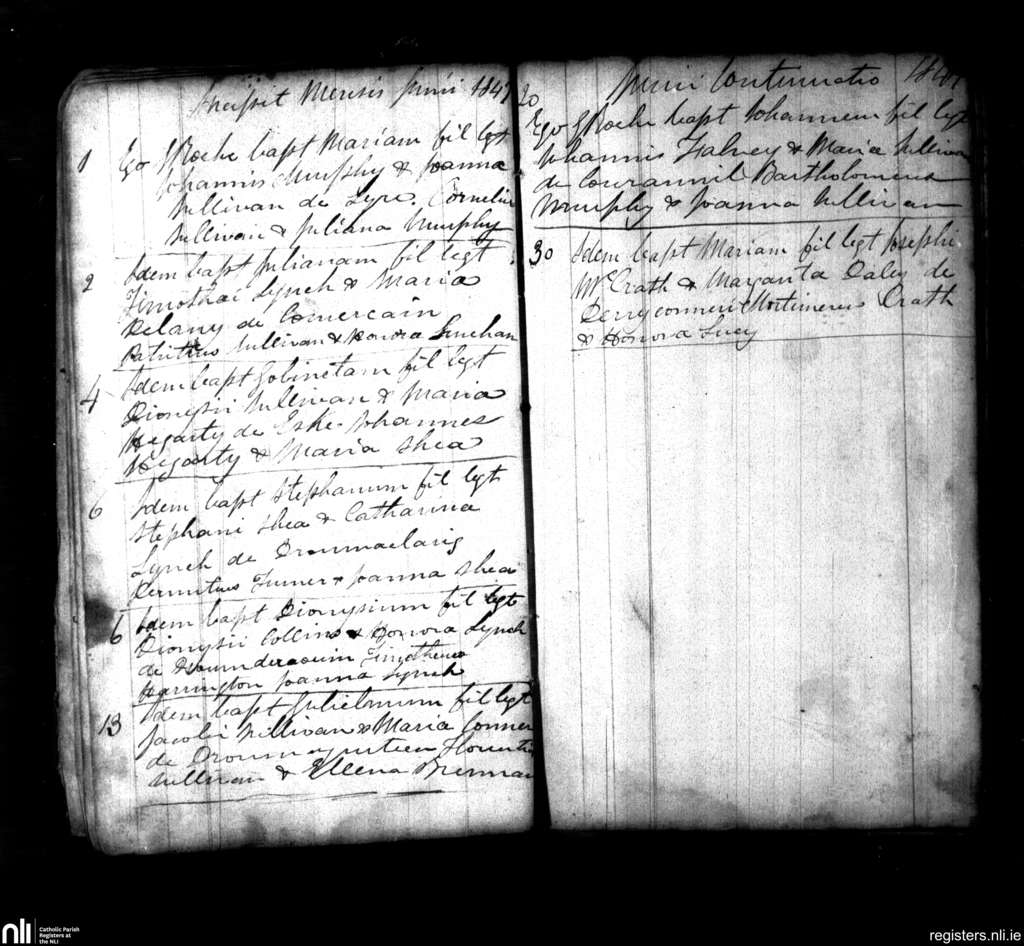 Incipit Mensis Junii 1847
1 Ego J Roche bapt Mariam fil legt
Johannis Murphy & Joanna
Sullivan de Lyre. Cornelius
Sullivan & Juliana Murphy
2 Idem bapt Julianam fil legt
Timothei Lynch & Maria
Delany de Comercain
Patritius Sullivan & Honora Linehan
4 Idem bapt Gobinetam fil legt
Dionysii Sullivan & Maria
Hegarty de Eske. Johannes
Hegarty & Maria Shea
6 Idem bapt Stephanum fil legt
Stephani Shea & Catharina
Lynch de
Dermitius Turner & Joanna Shea
6 Idem bapt Dionysium fil legt
Dionysii Collins & Honora Lynch
de Timotheus
Harrington Joanna Lynch
13 Idem bapt Gulielmum fil legt
Jacobi Sullivan & Maria Conner
de
Sullivan & Ellena Brennan
Junii Continuatio 1847
20 Ego J Roche bapt Johannem fil legt
Johannis Falvey & Maria Sullivan
de Bartholomeus
Murphy & Joanna Sullivan
30 Idem bapt Mariam fil legt Josephi
McCrath & Margarita Daley de
Mortimerus Crath
& Honora Lucy
nli
Catholic Parish
Registers at
the NLI
registers.nli.ie